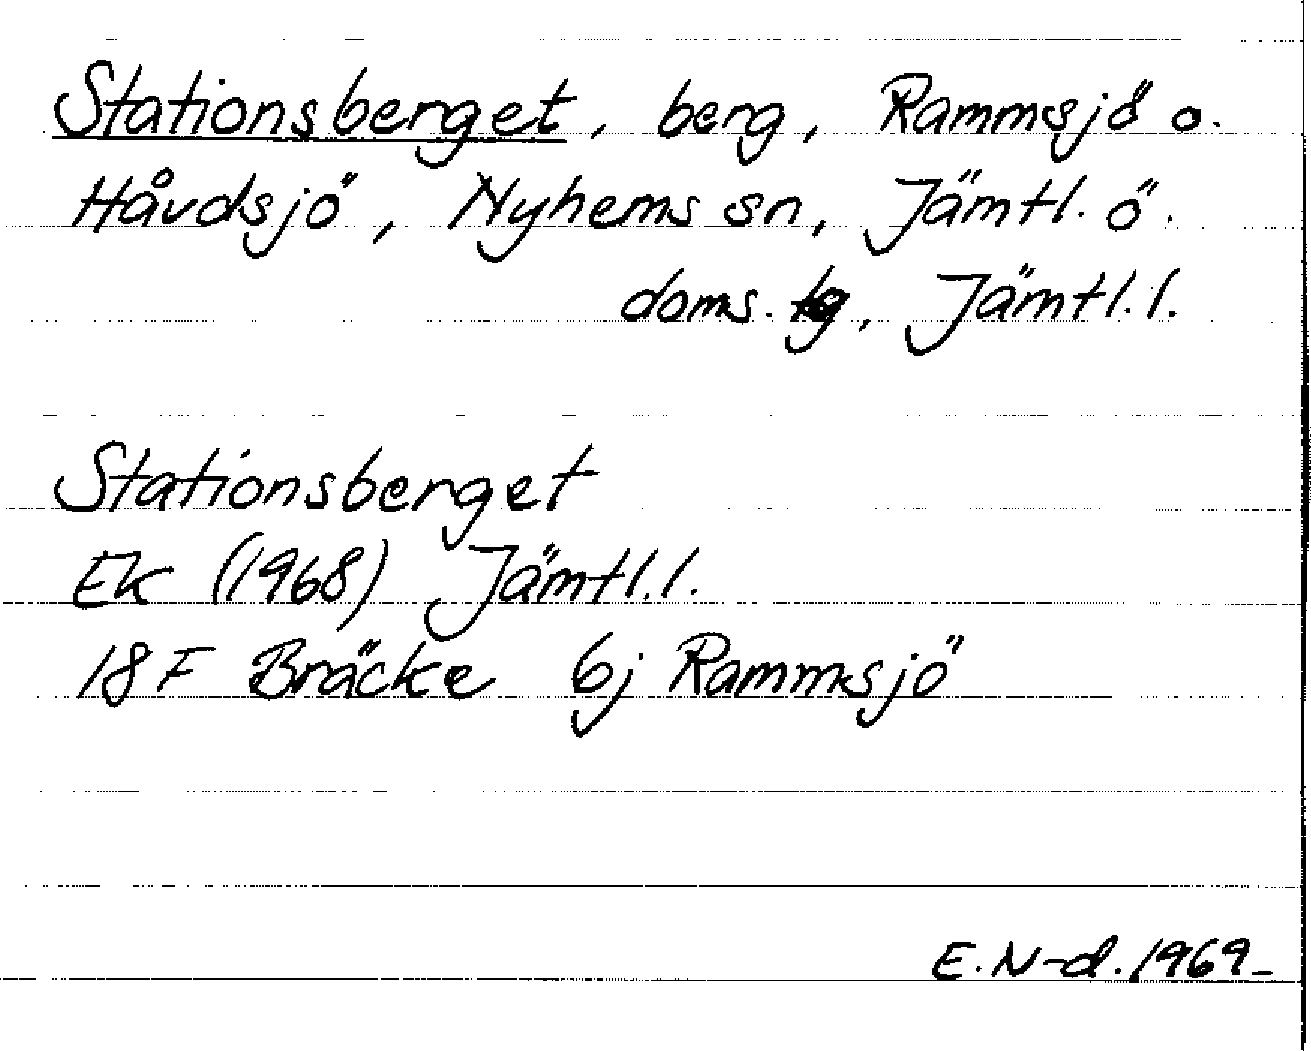 Stationsberget, berg, Rammsjö o.
Håvdsjö, Nyhems sn, Jämtl. ö.
doms. lg, Jämtl. l.
Stationsberget
EK (1968) Jämtl. l.
18 F Bräcke 6j Rammsjö
E. N-d. 1969